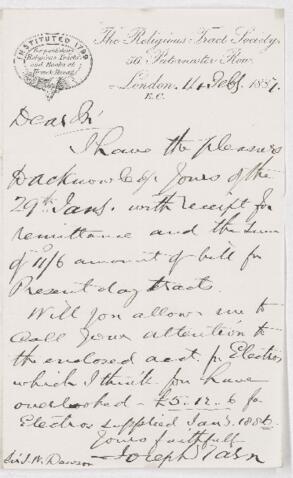 INSTITUTED 1799
for publishing
Religious Tracts
and Books at
Home & Abroad
The Religious Tract Society,
56 Paternoster Row
London, 14 Feby 1887.
E.C.
Dear Sir
I have the pleasure
to acknowledge yours of the
29th Jany. with receipt for
remittance and the sum
of 11/6 amount of bill for
Present day tracts.
Will you allow me to
call your attention to
the enclosed acct. for Electros
which I think you have
overlooked - £5.12.6 for
Electros supplied Jany 1886.
Yours faithfully
Joseph Tarn
Sir J. W. Dawson